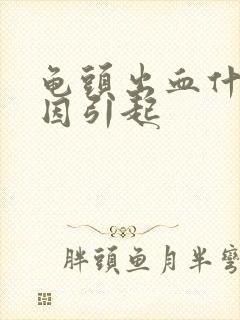 龟頭出血什
因引起
胖頭鱼月半彎